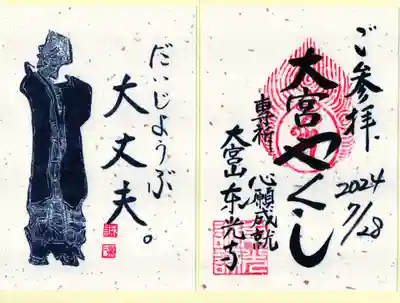 だいじようぶ
大丈夫。
ご参拝
2024
7/28
大宮やくし
専祈
心願成就
大宮山东光寺